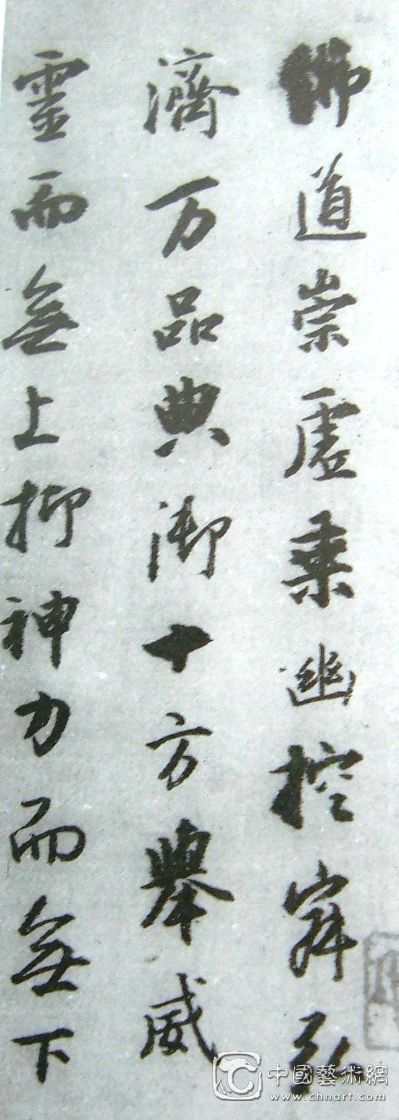 佛道崇虛乘幽控寂弘
濟万品典御十方舉威
靈而無上抑神力而無下
中國藝術網
www.chnart.com